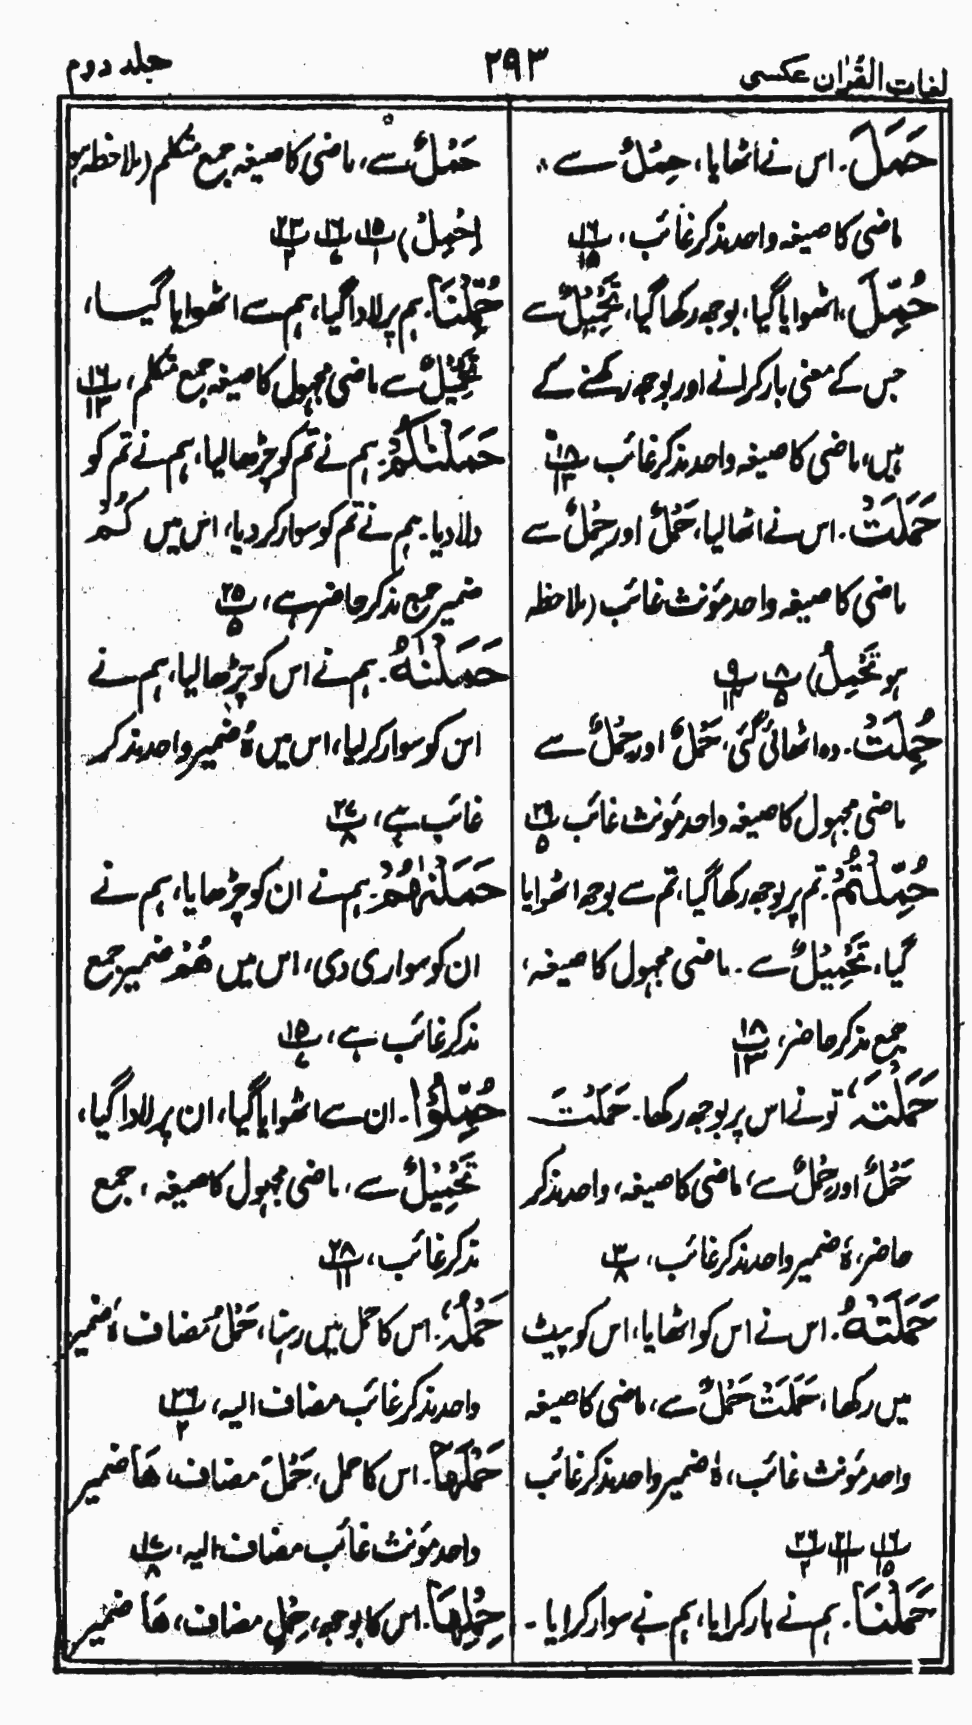 لغات القرآن عکسی ۲۹۳ جلد دوم
حَمَلَ. اس نے اٹھایا، حِمْلٌ سے،
ماضی کا صیغہ واحد مذکر غائب، ۱۶/۱۵
حُمِّلَ، اٹھوایا گیا، بوجھ رکھا گیا، تَحْمِیْلٌ سے
جس کے معنی بار کرانے اور بوجھ رکھنے کے
ہیں، ماضی کا صیغہ واحد مذکر غائب ۱۸/۱۳
حَمَلَتْ. اس نے اٹھا لیا، حَمْلٌ اور حِمْلٌ سے
ماضی کا صیغہ واحد مؤنث غائب (ملاحظہ
ہو تَحْمِیلٌ) ۸/۵
حُمِلَتْ. وہ اٹھائی گئی، حَمْلٌ اور حِمْلٌ سے
ماضی مجہول کا صیغہ واحد مؤنث غائب ۲۹/۵
حُمِّلْتُمْ. تم پر بوجھ رکھا گیا، تم سے بوجھ اٹھوایا
گیا، تَحْمِیْلٌ سے. ماضی مجہول کا صیغہ،
جمع مذکر حاضر، ۱۸/۱۳
حَمَلْتَہٗ، تو نے اس پر بوجھ رکھا. حَمَلْتَ
حَمْلٌ اور حِمْلٌ سے، ماضی کا صیغہ، واحد مذکر
حاضر، ہٗ ضمیر واحد مذکر غائب، ۳/۸
حَمَلَتْہُ. اس نے اس کو اٹھایا، اس کو پیٹ
میں رکھا، حَمَلَتْ حَمْلٌ سے، ماضی کا صیغہ
واحد مؤنث غائب، ہٗ ضمیر واحد مذکر غائب
۱۶/۱۵ ۲۱/۱۱ ۲۶/۲
حَمَلْنَا. ہم نے بار کرایا، ہم نے سوار کرایا.
حَمْلٌ سے، ماضی کا صیغہ جمع متکلم (ملاحظہ ہو
اِحْمِلْ) ۱۵/۱ ۱۶/۷ ۲۳/۲
حُمِّلْنَا. ہم پر لادا گیا، ہم سے اٹھوایا گیا،
تَحْمِیْلٌ سے ماضی مجہول کا صیغہ جمع متکلم، ۱۶/۱۳
حَمَلْنٰکُمْ. ہم نے تم کو چڑھا لیا، ہم نے تم کو
لادیا. ہم نے تم کو سوار کر دیا، اس میں کُمْ
ضمیر جمع مذکر حاضر ہے، ۲۵/۵
حَمَلْنٰہُ. ہم نے اس کو چڑھا لیا، ہم نے
اس کو سوار کر لیا، اس میں ہٗ ضمیر واحد مذکر
غائب ہے، ۲۷/۸
حَمَلْنٰھُمْ. ہم نے ان کو چڑھایا، ہم نے
ان کو سواری دی، اس میں ھُمْ ضمیر جمع
مذکر غائب ہے، ۱۵/۷
حُمِّلُوْا. ان سے اٹھوایا گیا، ان پر لادا گیا،
تَحْمِیْلٌ سے، ماضی مجہول کا صیغہ، جمع
مذکر غائب، ۲۸/۱۱
حَمْلُہٗ. اس کا حمل میں رہنا، حَمْلُ مضاف ہٗ ضمیر
واحد مذکر غائب مضاف الیہ، ۲۶/۲
حَمْلَھَا. اس کا حمل، حَمْلَ مضاف، ھَا ضمیر
واحد مؤنث غائب مضاف الیہ، ۱۷/۸
حِمْلِھَا. اس کا بوجھ، حِمْلِ مضاف، ھَا ضمیر